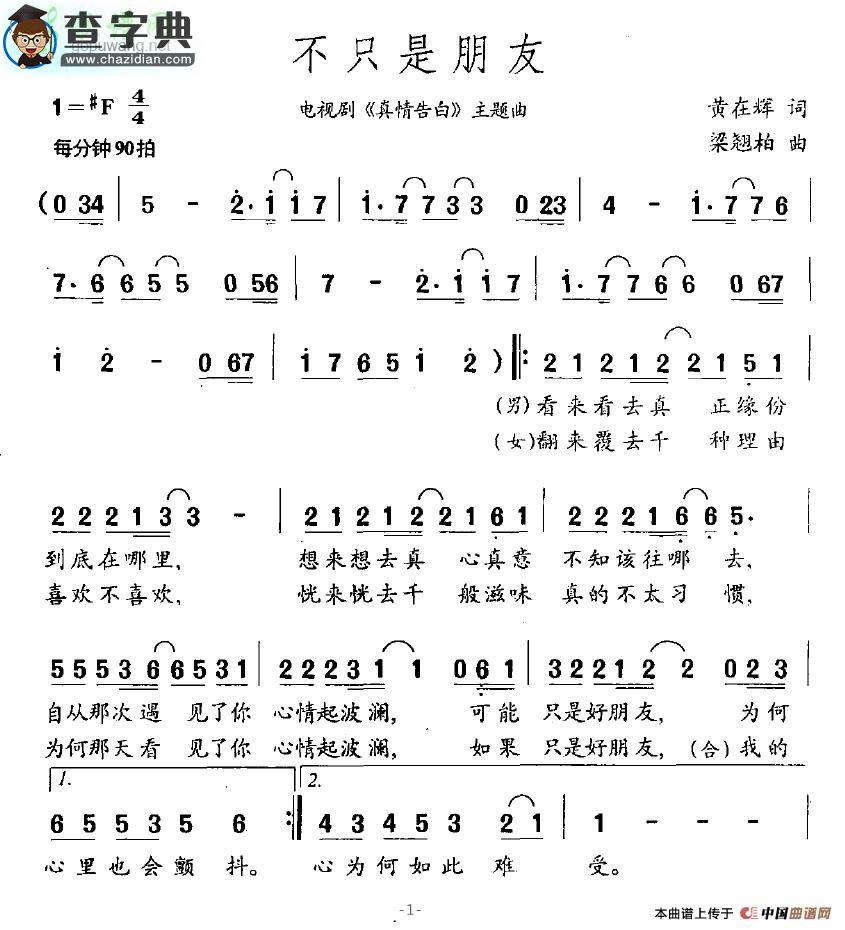 查字典
gepuwang.net
www.chazidian.com
不只是朋友
1=#F 4/4
电视剧《真情告白》主题曲
黄在辉 词
每分钟90拍
梁翘柏 曲
(0 34 | 5 - 2·1 1 7 | 1·7 7 3 3 0 23 | 4 - 1·7 7 6 |
7·6 6 5 5 0 56 | 7 - 2·1 1 7 | 1·7 7 6 6 0 67 |
1 2 - 0 67 | 1 7 6 5 1 2 ) ‖: 2 1 2 1 2 2 1 5 1
(男)看来看去真 正缘份
(女)翻来覆去千 种理由
2 2 2 1 3 3 - | 2 1 2 1 2 2 1 6 1 | 2 2 2 1 6 6 5· |
到底在哪里, 想来想去真 心真意 不知该往哪 去,
喜欢不喜欢, 恍来恍去千 般滋味 真的不太习 惯,
5 5 5 3 6 6 5 3 1 | 2 2 2 3 1 1 0 6 1 | 3 2 2 1 2 2 0 2 3 |
自从那次遇 见了你 心情起波澜, 可能 只是好朋友, 为何
为何那天看 见了你 心情起波澜, 如果 只是好朋友, (合)我的
1. 2.
6 5 5 3 5 6 :‖ 4 3 4 5 3 2 1 | 1 - - - |
心里也会颤 抖。 心为何如此 难 受。
-1-
本曲谱上传于 中国曲谱网